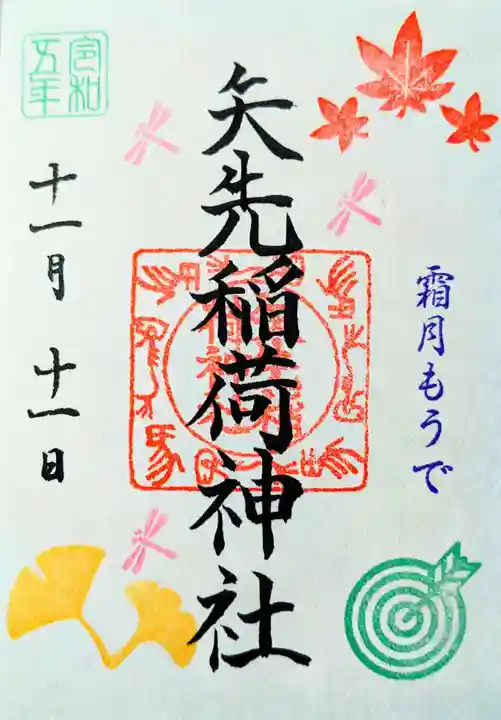 霜月もうで
矢先稲荷神社
令和
五年
十一月十一日